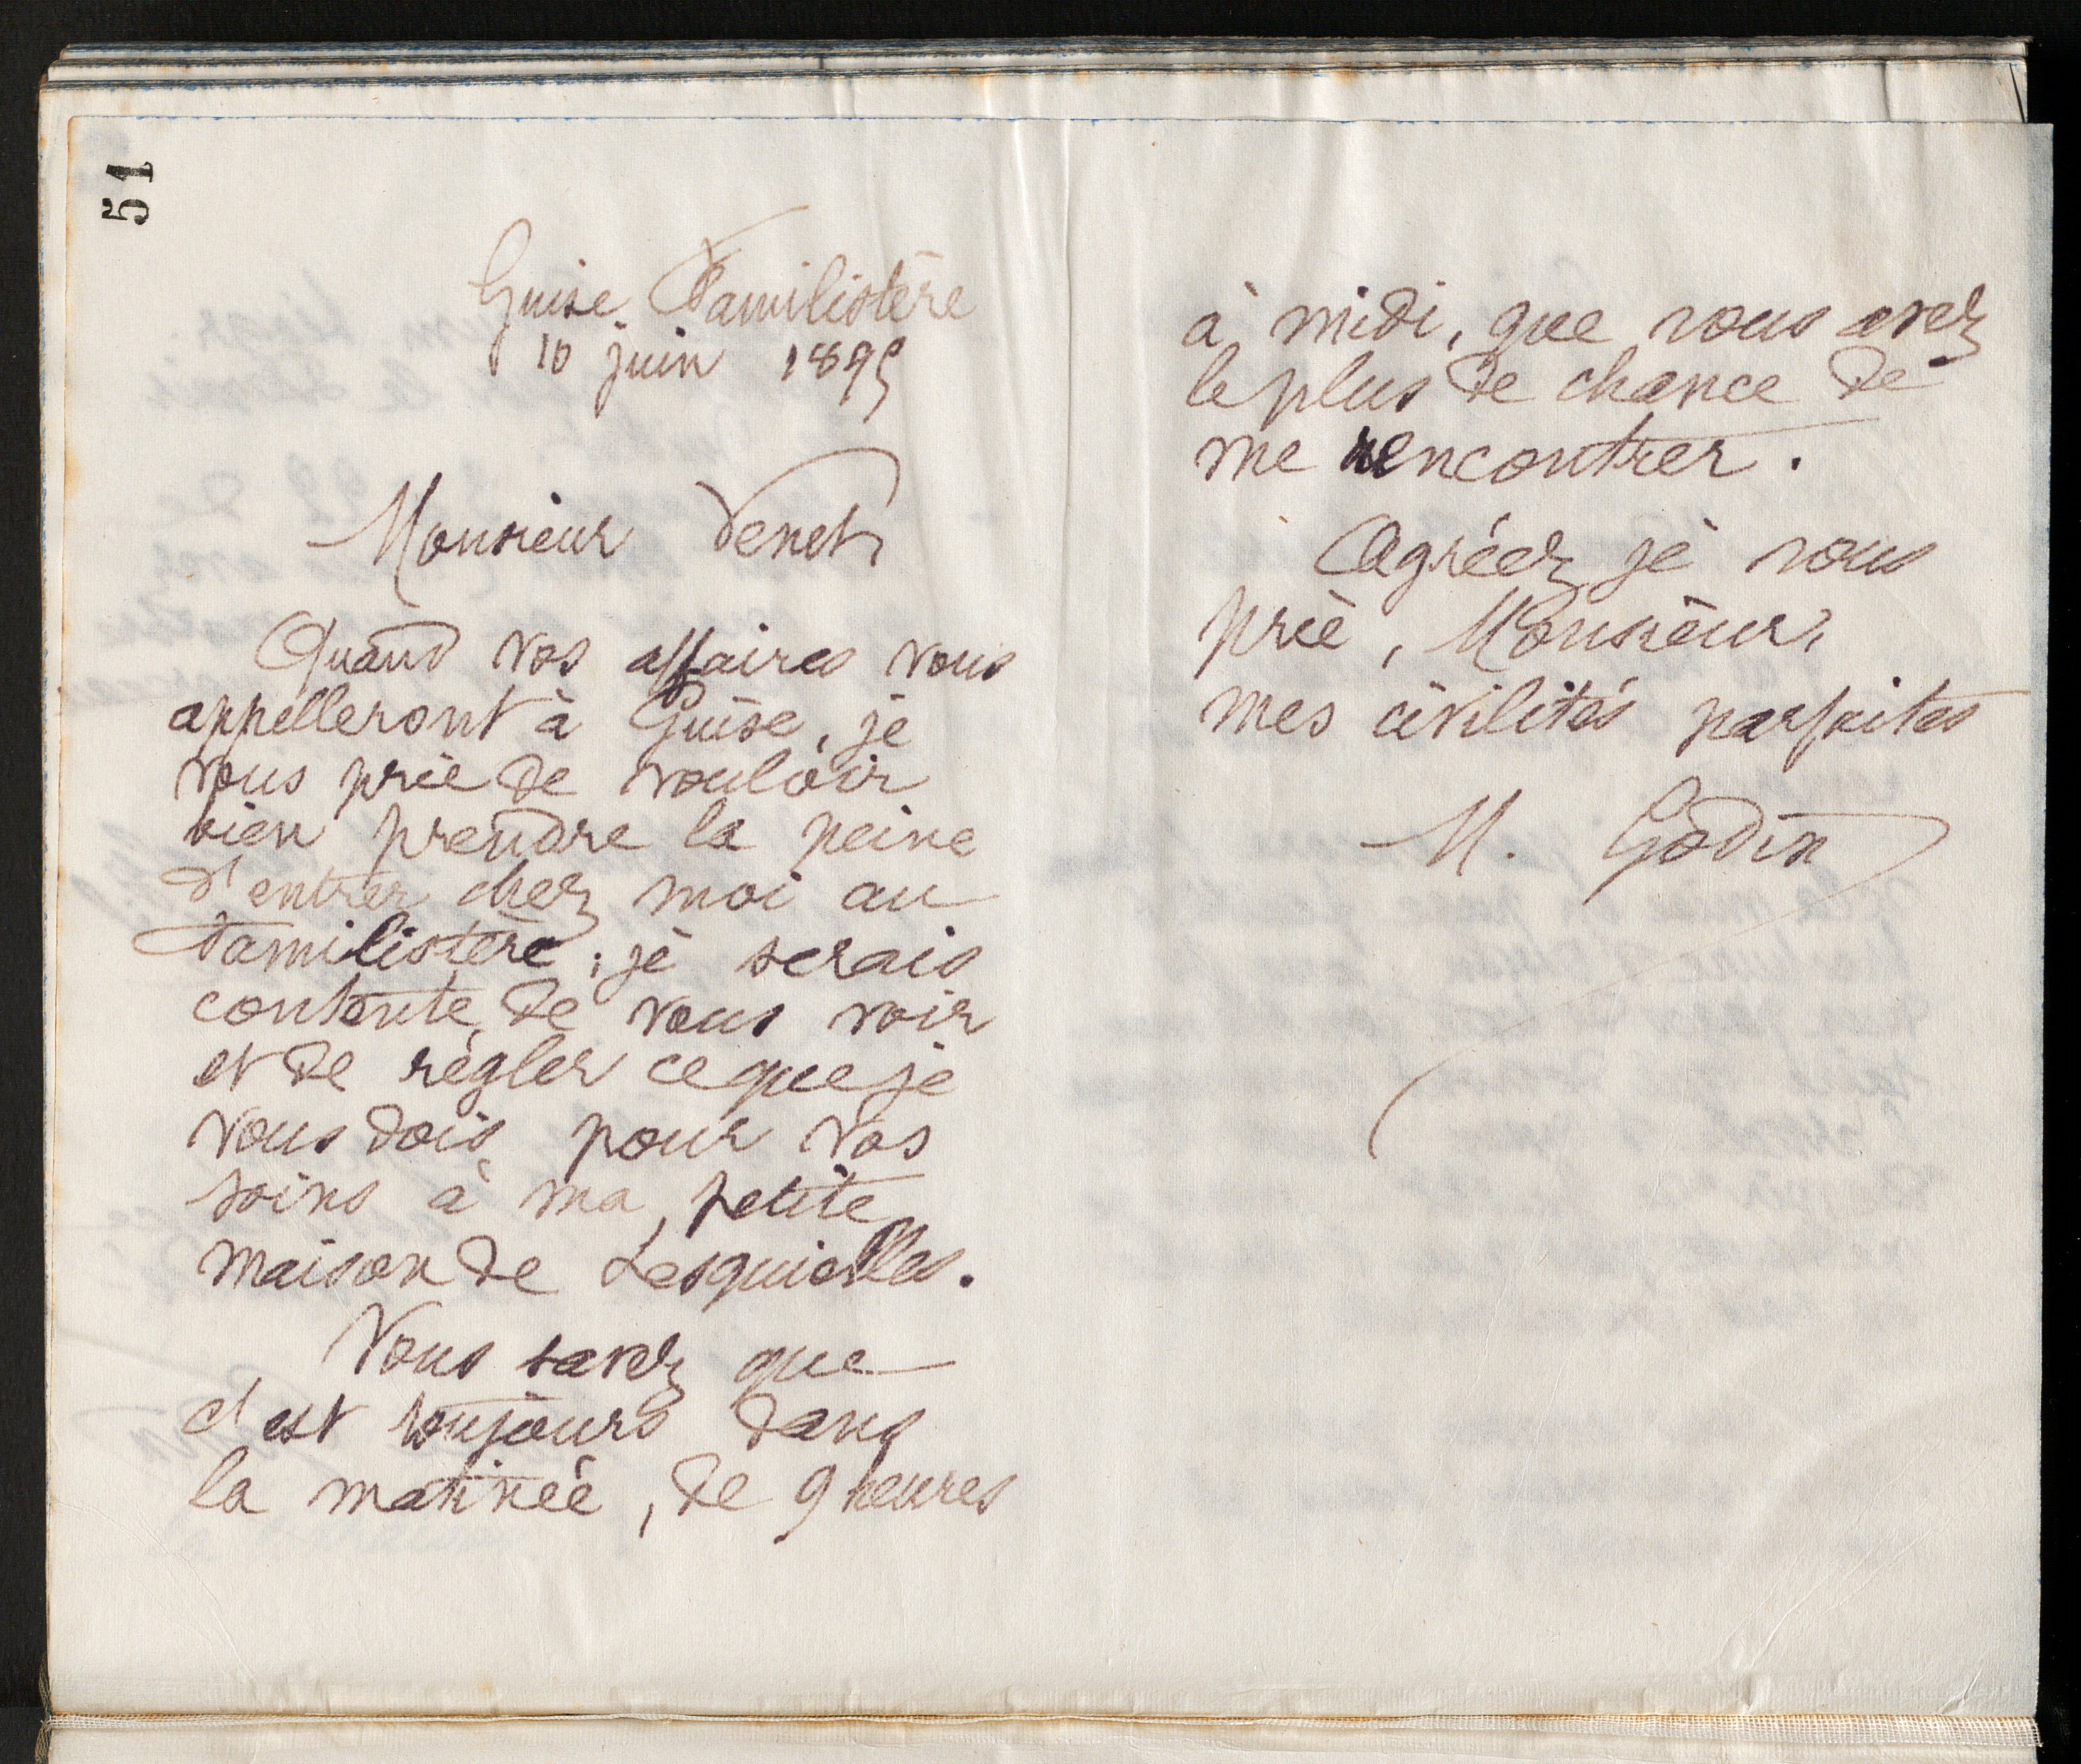 51
Guise Familistère
10 juin 1895
Monsieur Venet
Quand vos affaires vous
appelleront à Guise, je
vous prie de vouloir
bien prendre la peine
d'entrer chez moi au
Familistère ; je serais
contente de vous voir
et de régler ce que je
vous dois pour vos
soins à ma petite
maison de Lesquielles.
Vous savez que
c'est toujours dans
la matinée, de 9 heures
à midi, que vous avez
le plus de chance de
me rencontrer.
Agréez, je vous
prie, Monsieur,
mes civilités parfaites
M. Godin